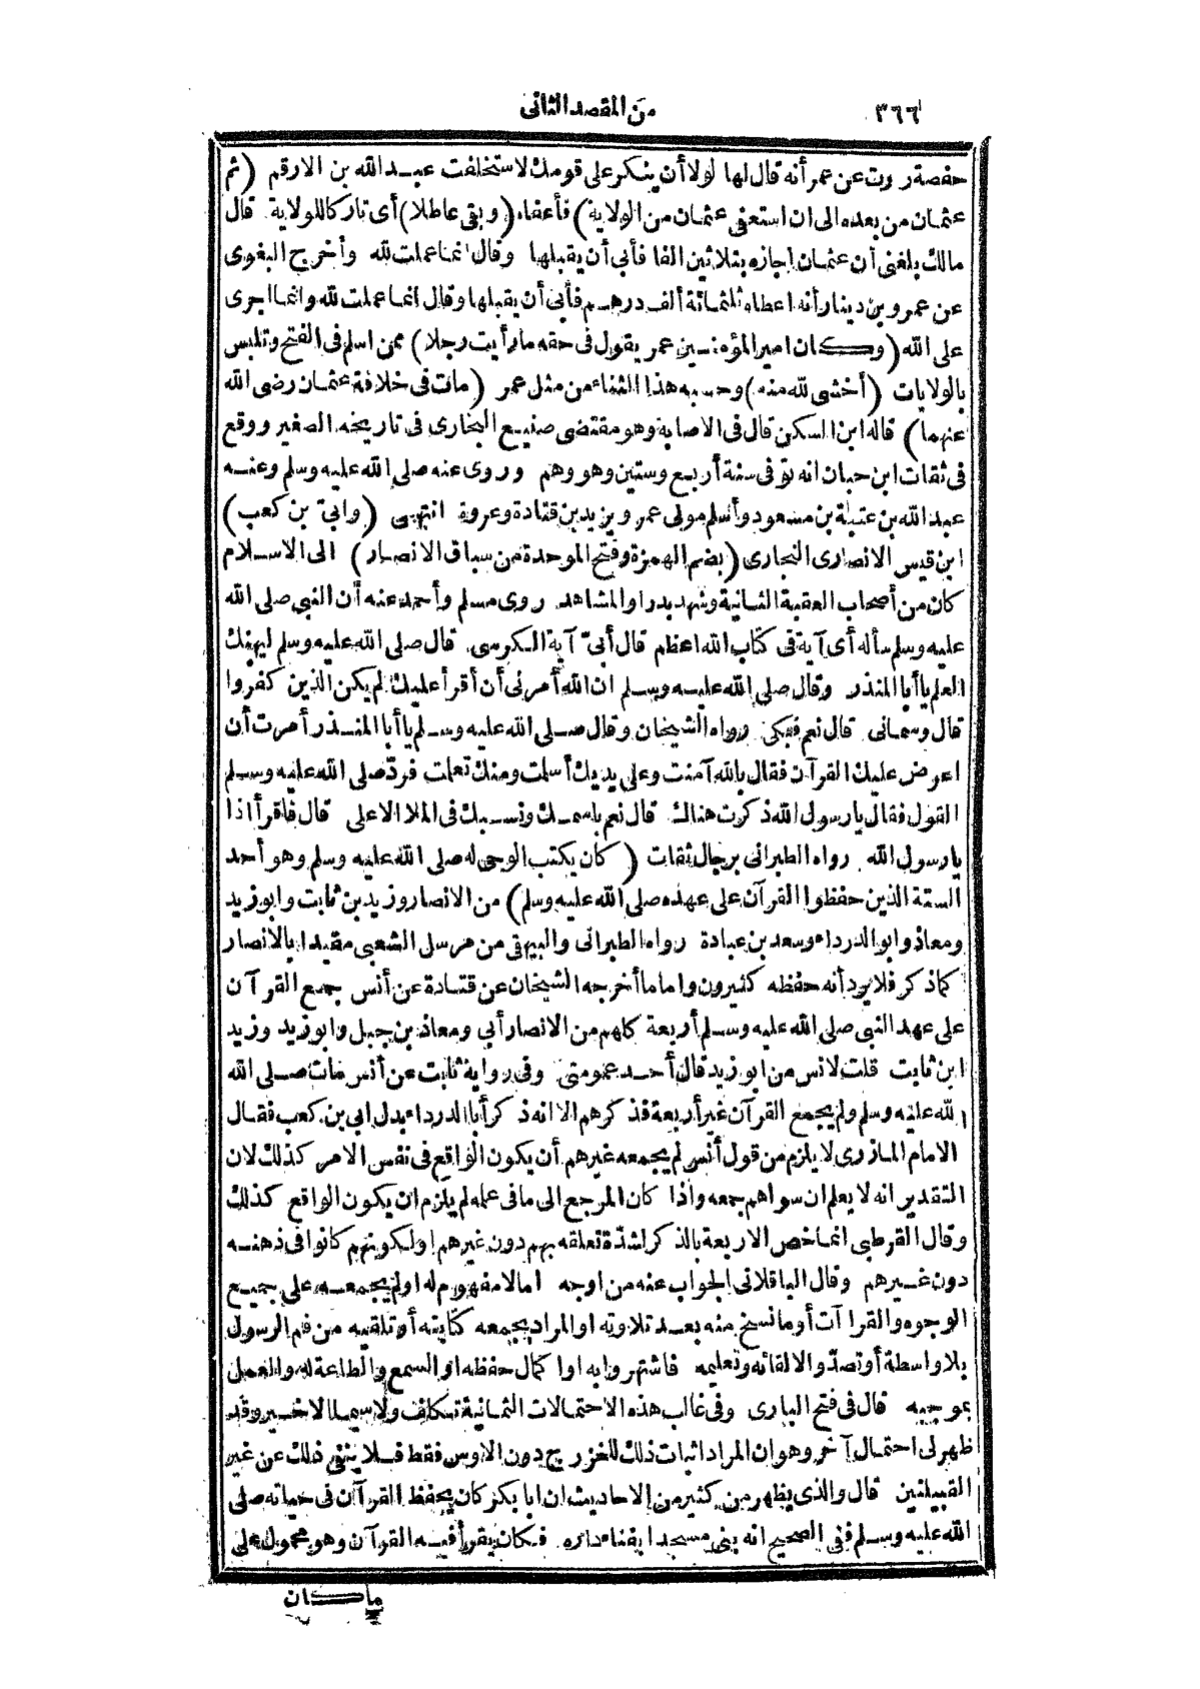 ٣٦٦
من المقصد الثانى
حفصة روت عن عمر أنه قال لها لولا أن ينكر على قومك لاستخلفت عبد الله بن الارقم (ثم
عثمان من بعده الى ان استعفى عثمان من الولاية) فأعفاه (وبقى عاطلا) أى تاركا للولاية قال
مالك بلغنى أن عثمان اجازه بثلاثين الفا فأبى أن يقبلها وقال انما عملت لله وأخرج البغوى
عن عمرو بن دينار أنه اعطاه ثلثمائة ألف درهم فأبى أن يقبلها وقال انما عملت لله وانما اجرى
على الله (وكان امير المؤمنين عمر يقول فى حقه ما رأيت رجلا) ممن اسلم فى الفتح وتلبس
بالولايات (أخشى لله منه) وحسبه هذا الثناء من مثل عمر (مات فى خلافة عثمان رضى الله
عنهما) قاله ابن السكن قال فى الاصابة وهو مقتضى صنيع البخارى فى تاريخه الصغير ووقع
فى ثقات ابن حبان انه توفى سنة أربع وستين وهو وهم وروى عنه صلى الله عليه وسلم وعنه
عبد الله بن عتبة بن مسعود وأسلم مولى عمر ويزيد بن قتادة وعروة انتهى (وابىّ بن كعب)
ابن قيس الانصارى النجارى (بضم الهمزة وفتح الموحدة من سباق الانصار) الى الاسلام
كان من أصحاب العقبة الثانية وشهد بدرا والمشاهد روى مسلم وأحمد عنه أن النبى صلى الله
عليه وسلم سأله أى آية فى كتاب الله اعظم قال أبىّ آية الكرسى قال صلى الله عليه وسلم ليهنك
العلم يا أبا المنذر وقال صلى الله عليه وسلم ان الله أمرنى أن أقرأ عليك لم يكن الذين كفروا
قال وسمانى قال نعم فبكى رواه الشيخان وقال صلى الله عليه وسلم يا أبا المنذر أمرت أن
اعرض عليك القرآن فقال بالله آمنت وعلى يديك أسلمت ومنك تعلمت فردّ صلى الله عليه وسلم
القول فقال يا رسول الله ذكرت هناك قال نعم باسمك ونسبك فى الملا الاعلى قال فاقرأ اذا
يا رسول الله رواه الطبرانى برجال ثقات (كان يكتب الوحى له صلى الله عليه وسلم وهو أحد
الستة الذين حفظوا القرآن على عهده صلى الله عليه وسلم) من الانصار وزيد بن ثابت وابو زيد
ومعاذ وابو الدرداء وسعد بن عبادة رواه الطبرانى والبيهقى من مرسل الشعبى مقيدا بالانصار
كما ذكر فلا يرد أنه حفظه كثيرون واما ما أخرجه الشيخان عن قتادة عن أنس جمع القرآن
على عهد النبى صلى الله عليه وسلم أربعة كلهم من الانصار أبي ومعاذ بن جبل وابو زيد وزيد
ابن ثابت قلت لانس من ابو زيد قال أحد عمومتى وفى رواية ثابت عن أنس مات صلى الله
لله عليه وسلم ولم يجمع القرآن غير أربعة فذكرهم الا انه ذكر أبا الدرداء بدل ابي بن كعب فقال
الامام المازرى لا يلزم من قول أنس لم يجمعه غيرهم أن يكون الواقع فى نفس الامر كذلك لان
التقدير انه لا يعلم ان سواهم جمعه واذا كان المرجع الى ما فى علمه لم يلزم ان يكون الواقع كذلك
وقال القرطبى انما خص الاربعة بالذكر لشدة تعلقه بهم دون غيرهم اولكونهم كانوا فى ذهنه
دون غيرهم وقال الباقلانى الجواب عنه من اوجه اما لا مفهوم له او لم يجمعه على جميع
الوجوه والقراآت أو ما نسخ منه بعد تلاوته او المراد بجمعه كتابته أو تلقيه من فم الرسول
بلا واسطة أو تصدّوا لالقائه وتعليمه فاشتهروا به او اكمال حفظه او السمع والطاعة له والعمل
بموجبه قال فى فتح البارى وفى غالب هذه الاحتمالات الثمانية تكلف ولا سيما الاخير وقد
ظهر لى احتمال آخر وهو ان المراد اثبات ذلك للخزرج دون الاوس فقط فلا ينفى ذلك عن غير
القبيلتين قال والذى يظهر من كثير من الاحاديث ان ابا بكر كان يحفظ القرآن فى حياته صلى
الله عليه وسلم ففى الصحيح انه بنى مسجدا بفناء داره فكان يقرأ فيه القرآن وهو محمول على
ما كان